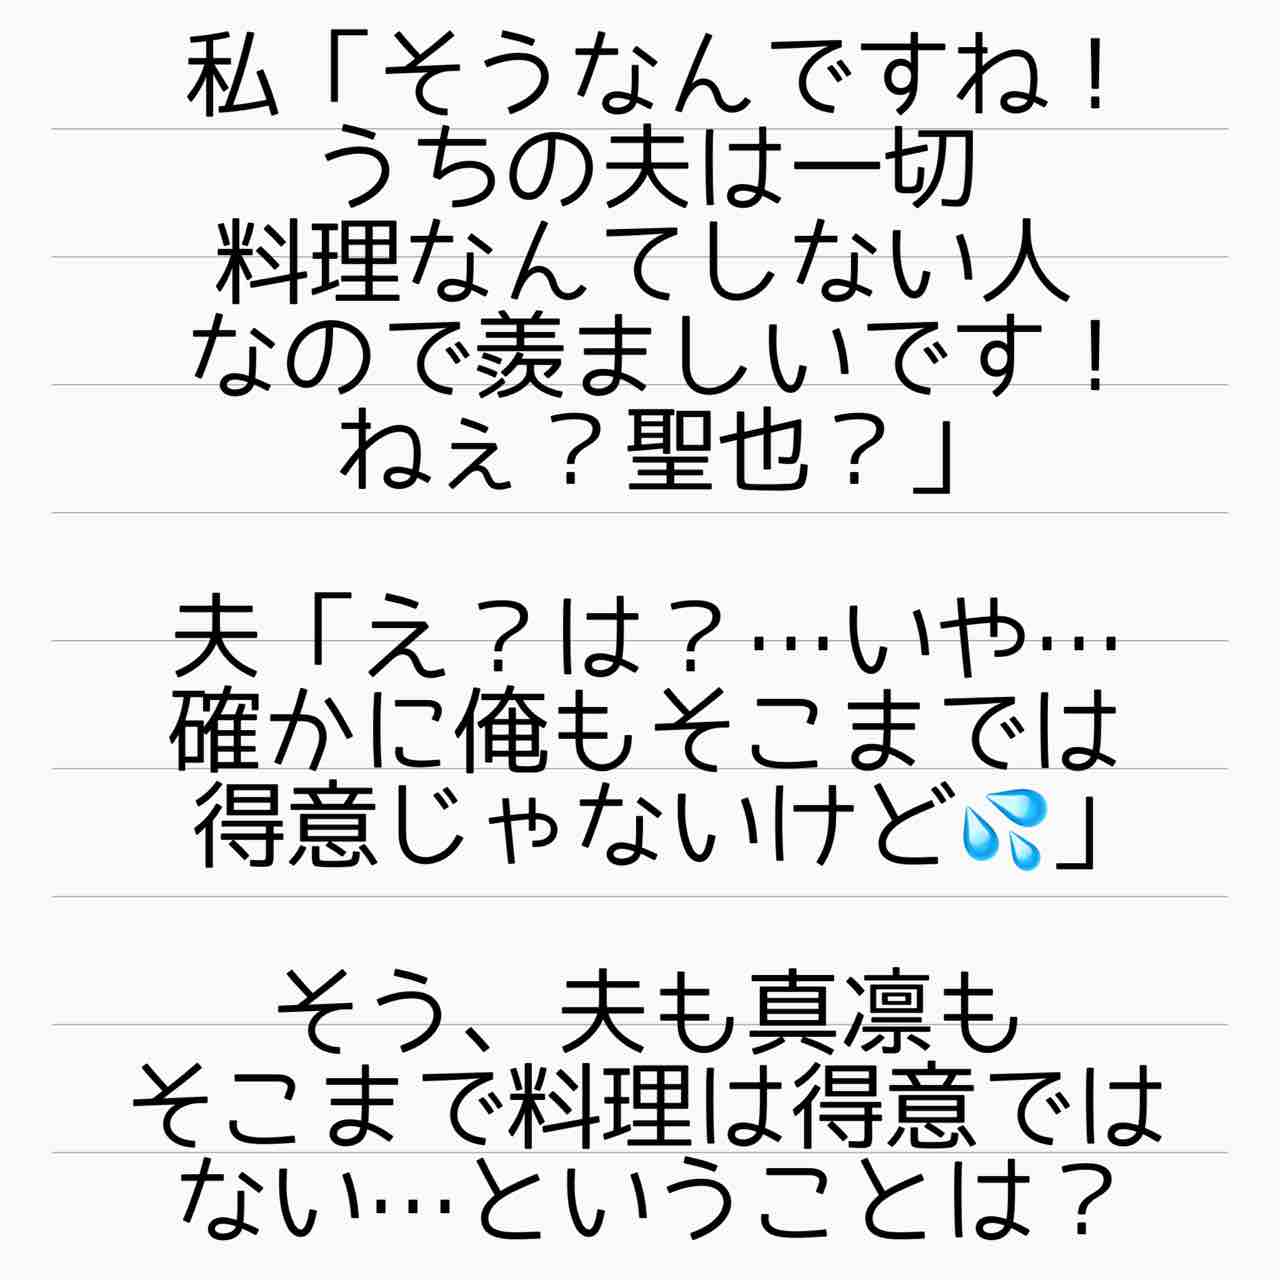 私「そうなんですね！
うちの夫は一切
料理なんてしない人
なので羨ましいです！
ねぇ？聖也？」
夫「え？は？…いや…
確かに俺もそこまでは
得意じゃないけど💦」
そう、夫も真凛も
そこまで料理は得意では
ない…ということは？